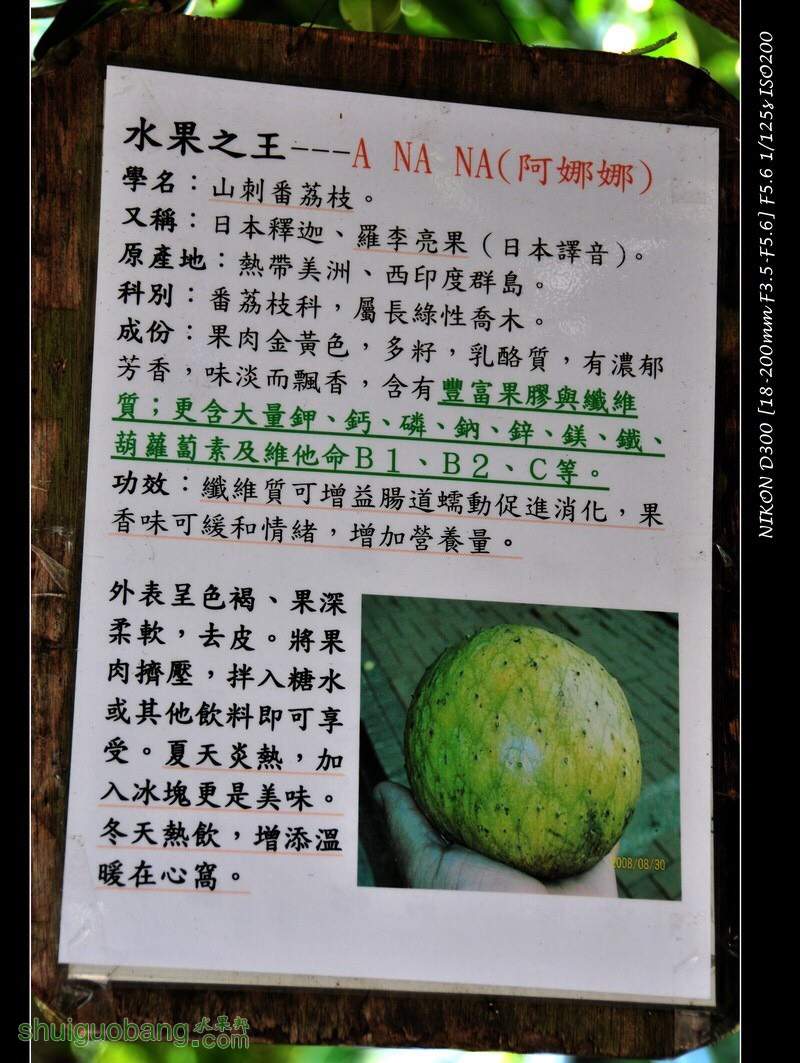 水果之王---A NA NA(阿娜娜)
學名：山刺番荔枝。
又稱：日本釋迦、羅李亮果（日本譯音）。
原產地：熱帶美洲、西印度群島。
科別：番荔枝科，屬長綠性喬木。
成份：果肉金黃色，多籽，乳酪質，有濃郁
芳香，味淡而飄香，含有豐富果膠與纖維
質；更含大量鉀、鈣、磷、鈉、鋅、鎂、鐵、
葫蘿蔔素及維他命B1、B2、C等。
功效：纖維質可增益腸道蠕動促進消化，果
香味可緩和情緒，增加營養量。
外表呈色褐、果深
柔軟，去皮。將果
肉擠壓，拌入糖水
或其他飲料即可享
受。夏天炎熱，加
入冰塊更是美味。
冬天熱飲，增添溫
暖在心窩。
2008/08/30
NIKON D300 [18-200mm F3.5-F5.6] F5.6 1/125s ISO200
shuiguobang.com 水果邦